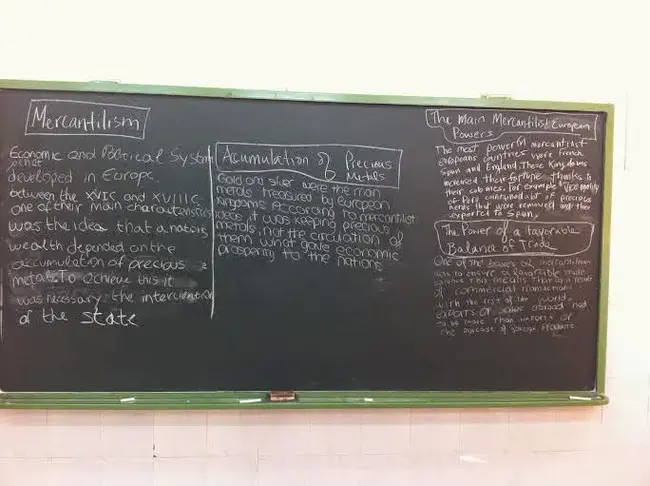 Mercantilism
Economic and Political System
developed in Europe
between the XVIC and XVIIIC
one of their main characteristics
was the idea that a nations
wealth depended on the
accumulation of precious
metals To achieve this it
was necessary the intervention
of the state
Acumulation of Precious
Metals
Gold and silver were the main
metals treasured by european
Kingdoms According to mercantilist
ideas, it was keeping precious
metals, not the circulation of
them what gave economic
prosperity to the nations
The Main Mercantilist European
Powers
The most powerful mercantilist
europeans countries were French,
Spain and England. These Kingdoms
increased their fortune thanks to
their colonies. For example
of Perú lot of precious
metals that were removed and then
exported to Spain.
The Power of a Favorable
Balance of Trade
One of the of mercantilism
was to ensure a favorable trade
balance this means that as a result
of commercial transactions
with the rest of the world,
exports or sales abroad had
to be more than imports or
the purchase of foreign products.